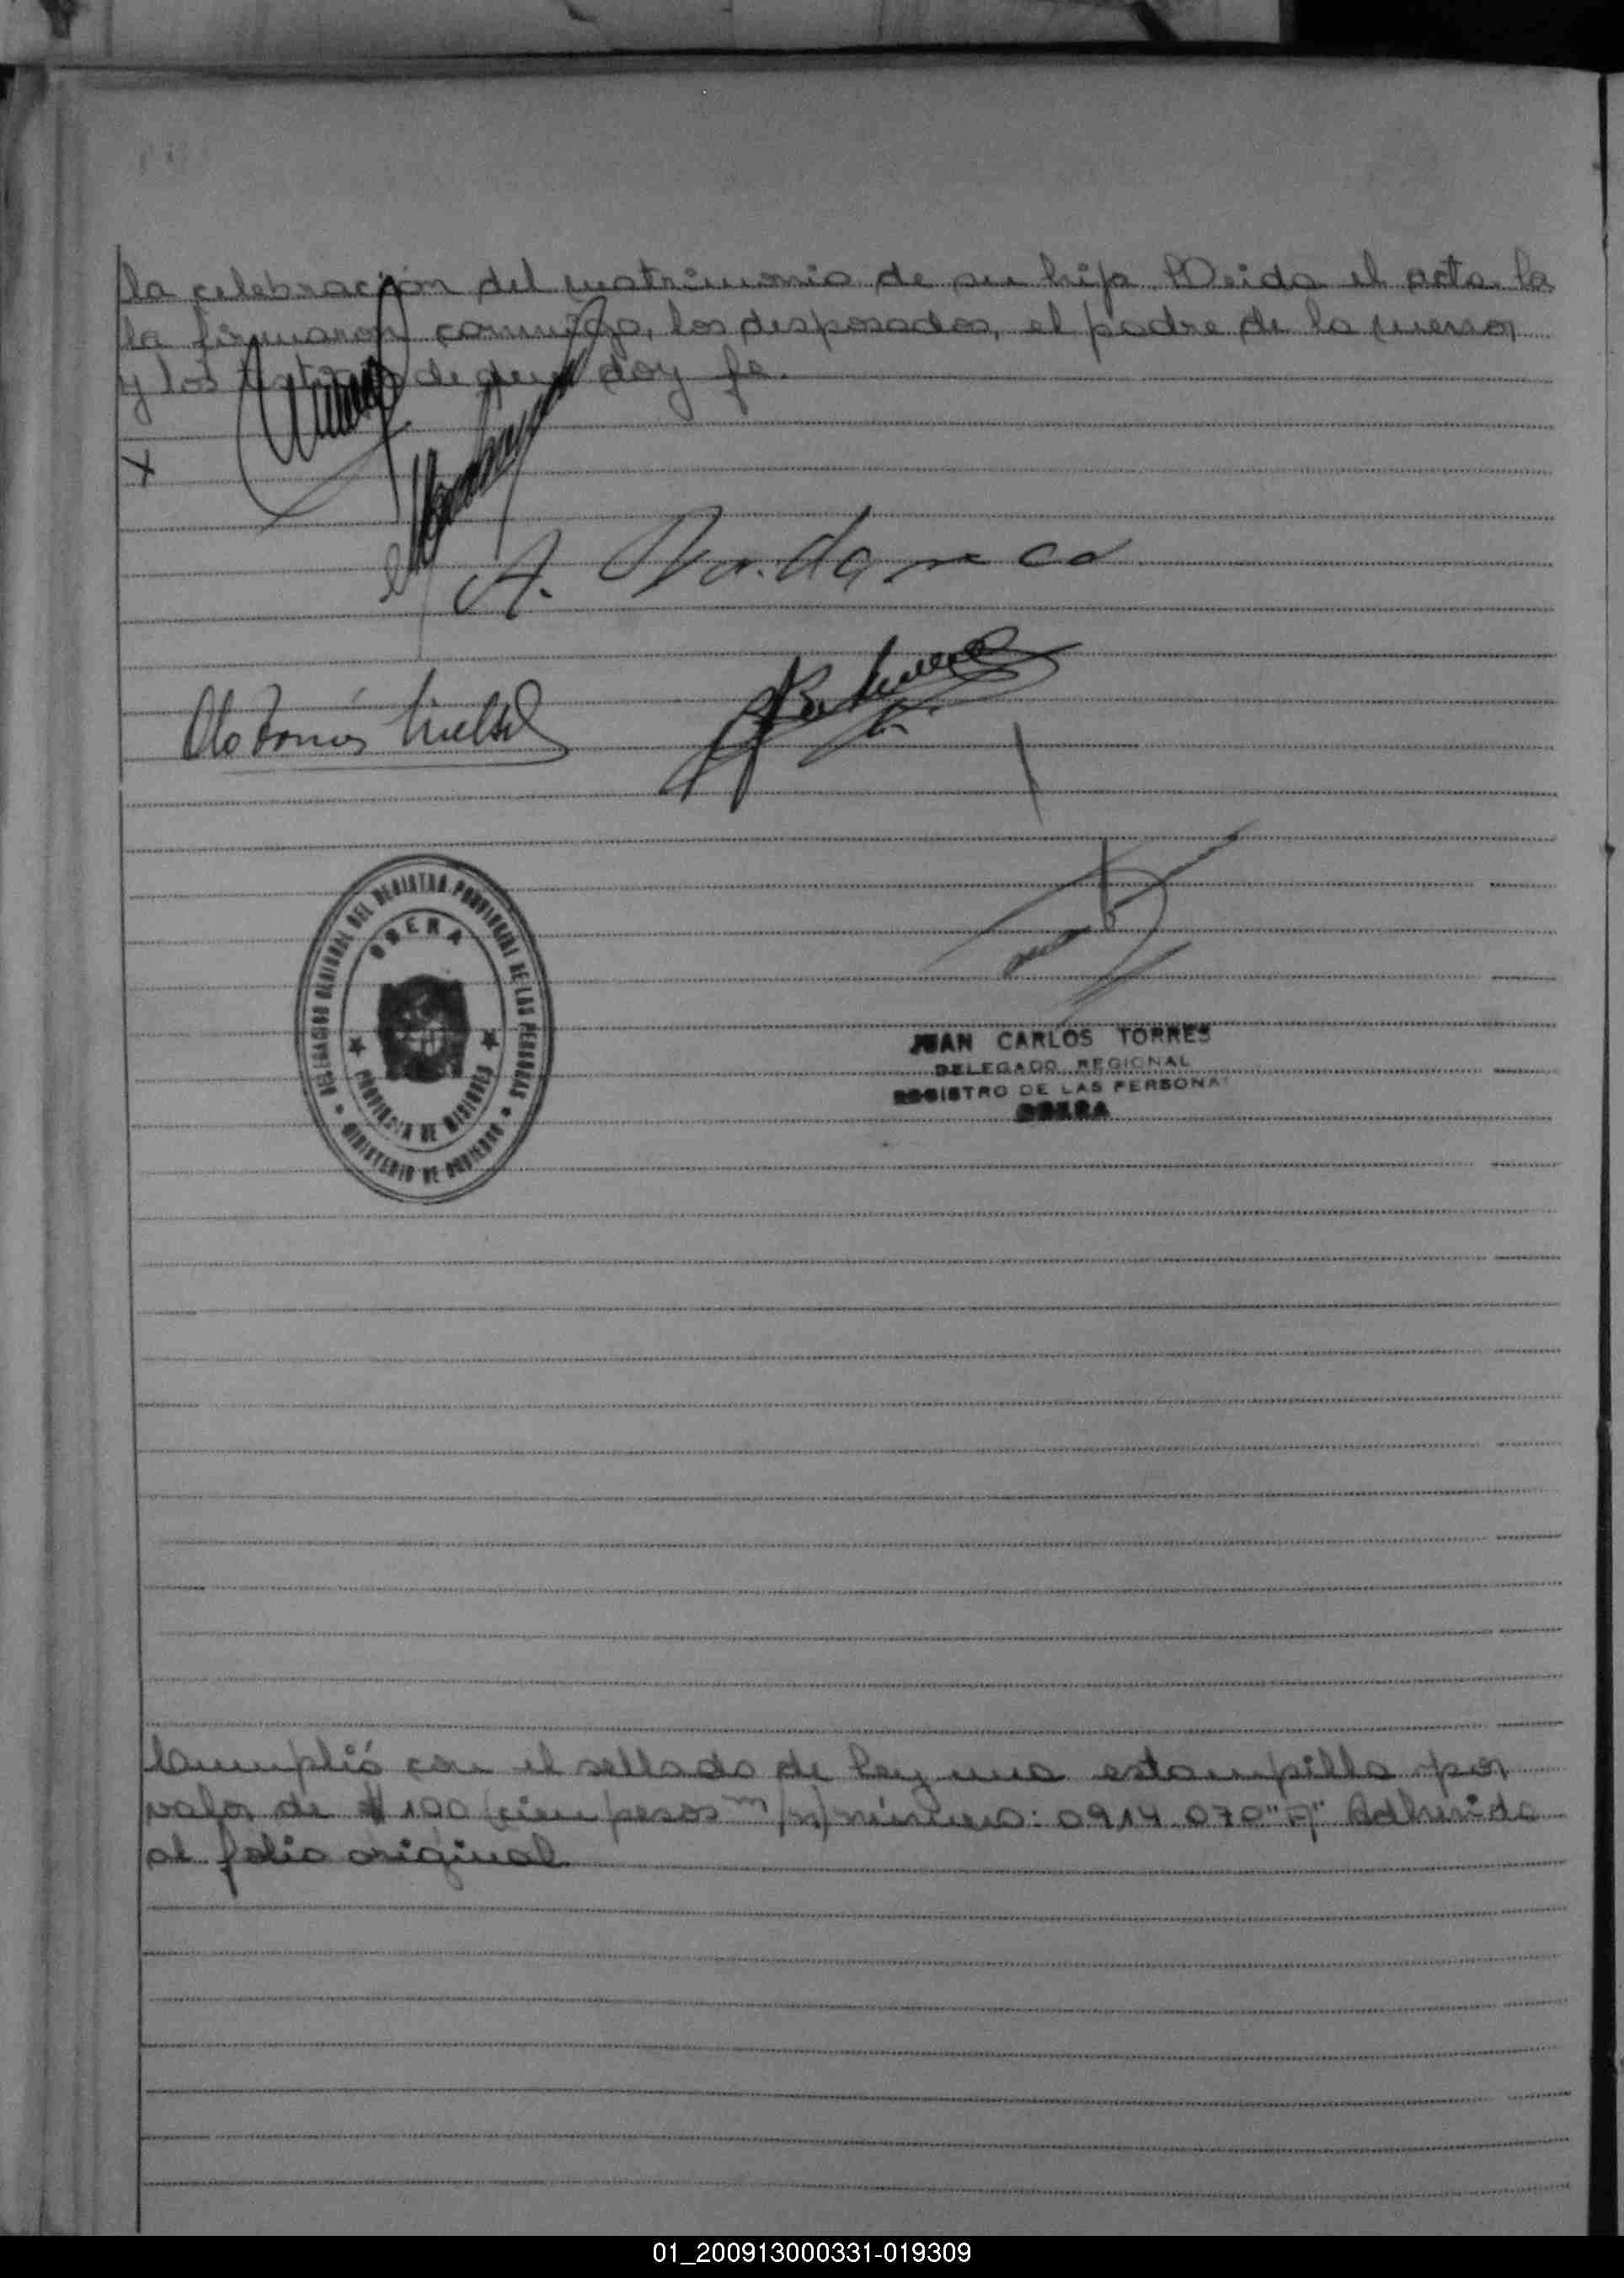 la celebración del matrimonio de su hija. Leida el acta, la
la firmaron conmigo, los desposados, el padre de la menor
y los testigos de que doy fe.
X
A.
Oto Tomás
DELEGACION REGIONAL DEL REGISTRO PROVINCIAL DE LAS PERSONAS
OBERA
PROVINCIA DE MISIONES
MINISTERIO DE GOBIERNO
JUAN CARLOS TORRES
DELEGADO REGIONAL
REGISTRO DE LAS PERSONA
OBERA
Cumplió con el sellado de ley una estampilla por
valor de $ 100 (cien pesos m/n) número: 0914.070 "A" Adherida
al folio original
01_200913000331-019309